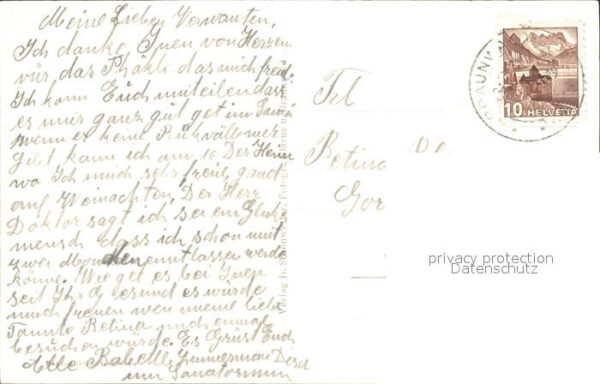 Meine Lieben Verwanten,
Ich danke Inen von Herzen
vür, das Phäkli das mich freut
Ich kann Euch mitteilen dass
es mir ganz gut get im Sana
wenn er keine Rükvälle mer
gibt kann ich am 10 Dez Heim
wo Ich mich sehr freue grad
auf Weinachten, Der Herr
Doktor sagt ich sei ein Glüks
mensch dass ich schon mit
zwei Monaten entlassen werde
könne. Wie get es bei Inen
seit Ihr gesund es würde
mich freuen wen meine liebe
Tannte Betina mich einmal
besuchen würde. Es Grüst Euch
Alle Babette Zimmermann
im Sanatorium
Frl
Betina
Gor
BRAUNW
10 HELVETIA
privacy protection
Datenschutz